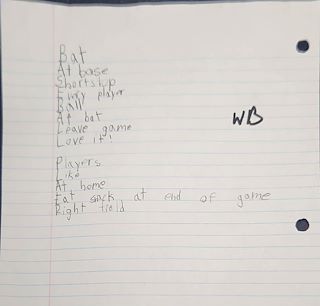 Bat
At base
Shortstop
Every player
Ball
At bat
Leave game
Love it!
WB
Players
Like
At home
Eat sack at end of game
Right field